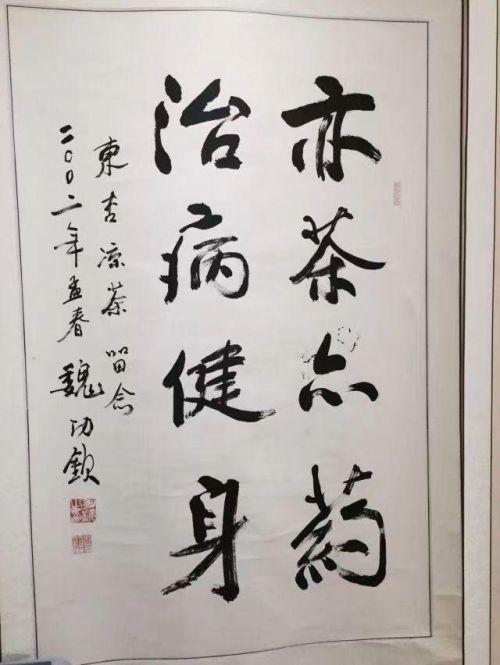 亦茶亦药
治病健身
東杏凉茶留念
二〇〇二年孟春魏功钦